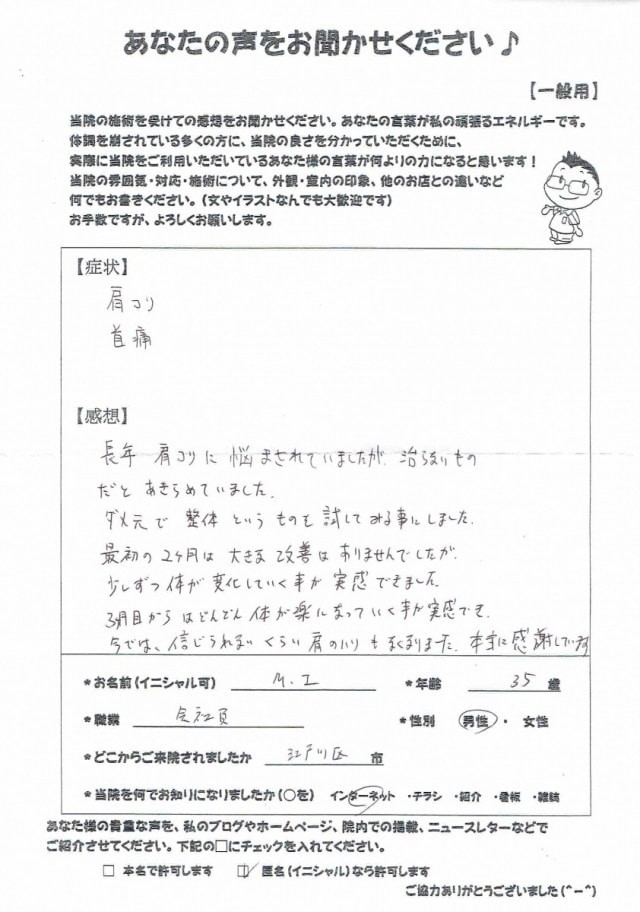 あなたの声をお聞かせください♪
【一般用】
当院の施術を受けての感想をお聞かせください。あなたの言葉が私の頑張るエネルギーです。
体調を崩されている多くの方に、当院の良さを分かっていただくために、
実際に当院をご利用いただいているあなた様の言葉が何よりの力になると思います！
当院の雰囲気・対応・施術について、外観・室内の印象、他のお店との違いなど
何でもお書きください。（文やイラストなんでも大歓迎です）
お手数ですが、よろしくお願いします。
【症状】
肩コリ
首痛
【感想】
長年 肩コリに悩まされていましたが、治らないもの
だと あきらめていました。
ダメ元で 整体 というものを 試してみる事にしました。
最初の2ヶ月は 大きな 改善は ありませんでしたが、
少しずつ 体が 変化していく事が 実感できました。
3ヶ月目からはどんどん 体が楽になっていく事が実感でき、
今では、信じられないくらい 肩のハリもなくなりました。本当に感謝しています
*お名前（イニシャル可） M.I *年齢 35 歳
*職業 会社員 *性別 男性 ・ 女性
*どこからご来院されましたか 江戸川区 市
*当院を何でお知りになりましたか（○を） インターネット ・チラシ ・紹介 ・看板 ・雑誌
あなた様の貴重な声を、私のブログやホームページ、院内での掲載、ニュースレターなどで
ご紹介させてください。下記の□にチェックを入れてください。
□ 本名で許可します ☑ 匿名（イニシャル）なら許可します
ご協力ありがとうございました（^－^）